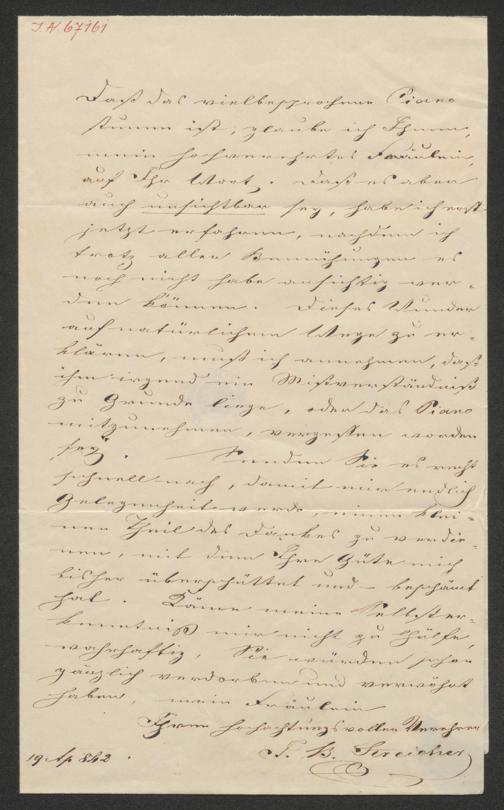 I.N. 67161
Daß das vielbesprochene Piano
stumm ist, glaube ich Ihnen,
mein hochverehrtes Fräulein,
auf Ihr Wort. Daß es aber
auch unsichtbar sey, habe ich erst
jetzt erfahren, nachdem ich
trotz allen Bemühungen es
noch nicht habe ansichtig wer-
den können. Dieses Wunder
auf natürlichem Wege zu er-
klären, muß ich annehmen, daß
ihm irgend ein Mißverständniß
zu Grunde liege, oder das Piano
mitzunehmen, vergessen worden
sey. Senden Sie es recht
schnell nach, damit mir endlich
Gelegenheit werde, einen klei-
nen Theil des Dankes zu verdie-
nen, mit dem Ihre Güte mich
bisher überschüttet und beschämt
hat. Käme meine Selbster-
kenntniß mir nicht zu Hülfe,
wahrhaftig, Sie würden schon
gänzlich verdorben und verwöhnt
haben, mein Fräulein
Ihren hochachtungsvollen Verehrer
J. B. Streicher
19 Ap 842.